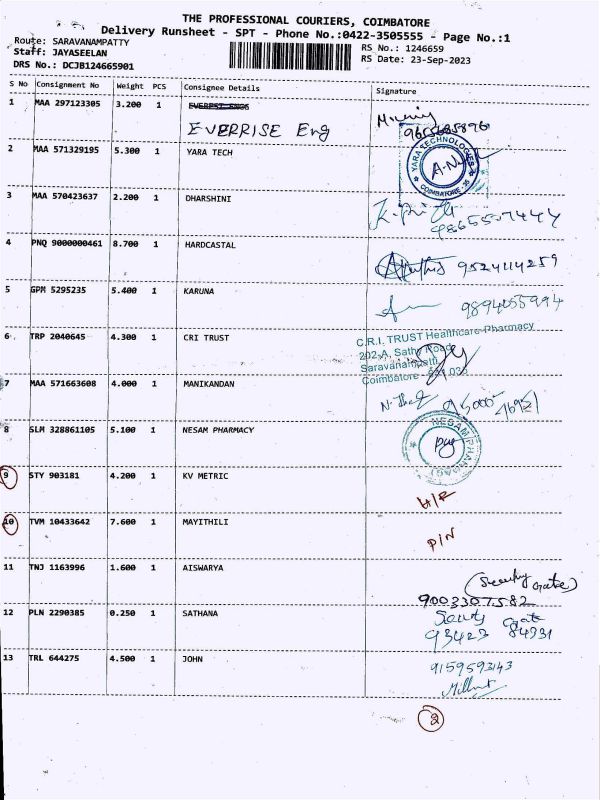 THE PROFESSIONAL COURIERS, COIMBATORE
Delivery Runsheet - SPT - Phone No.:0422-3505555 - Page No.:1
Route: SARAVANAMPATTY
Staff: JAYASEELAN
DRS No.: DCJB124665901
RS No.: 1246659
RS Date: 23-Sep-2023
S No Consignment No Weight PCS Consignee Details Signature
1 MAA 297123305 3.200 1
EVERRISE Eng
2 MAA 571329195 5.300 1 YARA TECH
YARA TECHNOLOGIES
COIMBATORE
3 MAA 570423637 2.200 1 DHARSHINI
4 PNQ 9000000461 8.700 1 HARDCASTAL
9524114259
5 GPM 5295235 5.400 1 KARUNA
9894055994
6 TRP 2040645 4.300 1 CRI TRUST
C.R.I. TRUST Healthcare Pharmacy
202-A, Sathy Road
Saravanampatti,
Coimbatore - 641 035
7 MAA 571663608 4.000 1 MANIKANDAN
8 SLM 328861105 5.100 1 NESAM PHARMACY
9 STY 903181 4.200 1 KV METRIC
10 TVM 10433642 7.600 1 MAYITHILI
P/N
11 TNJ 1163996 1.600 1 AISWARYA
(Security gate)
9003307582
12 PLN 2290385 0.250 1 SATHANA
gate
93423 84931
13 TRL 644275 4.500 1 JOHN
9159593143
2